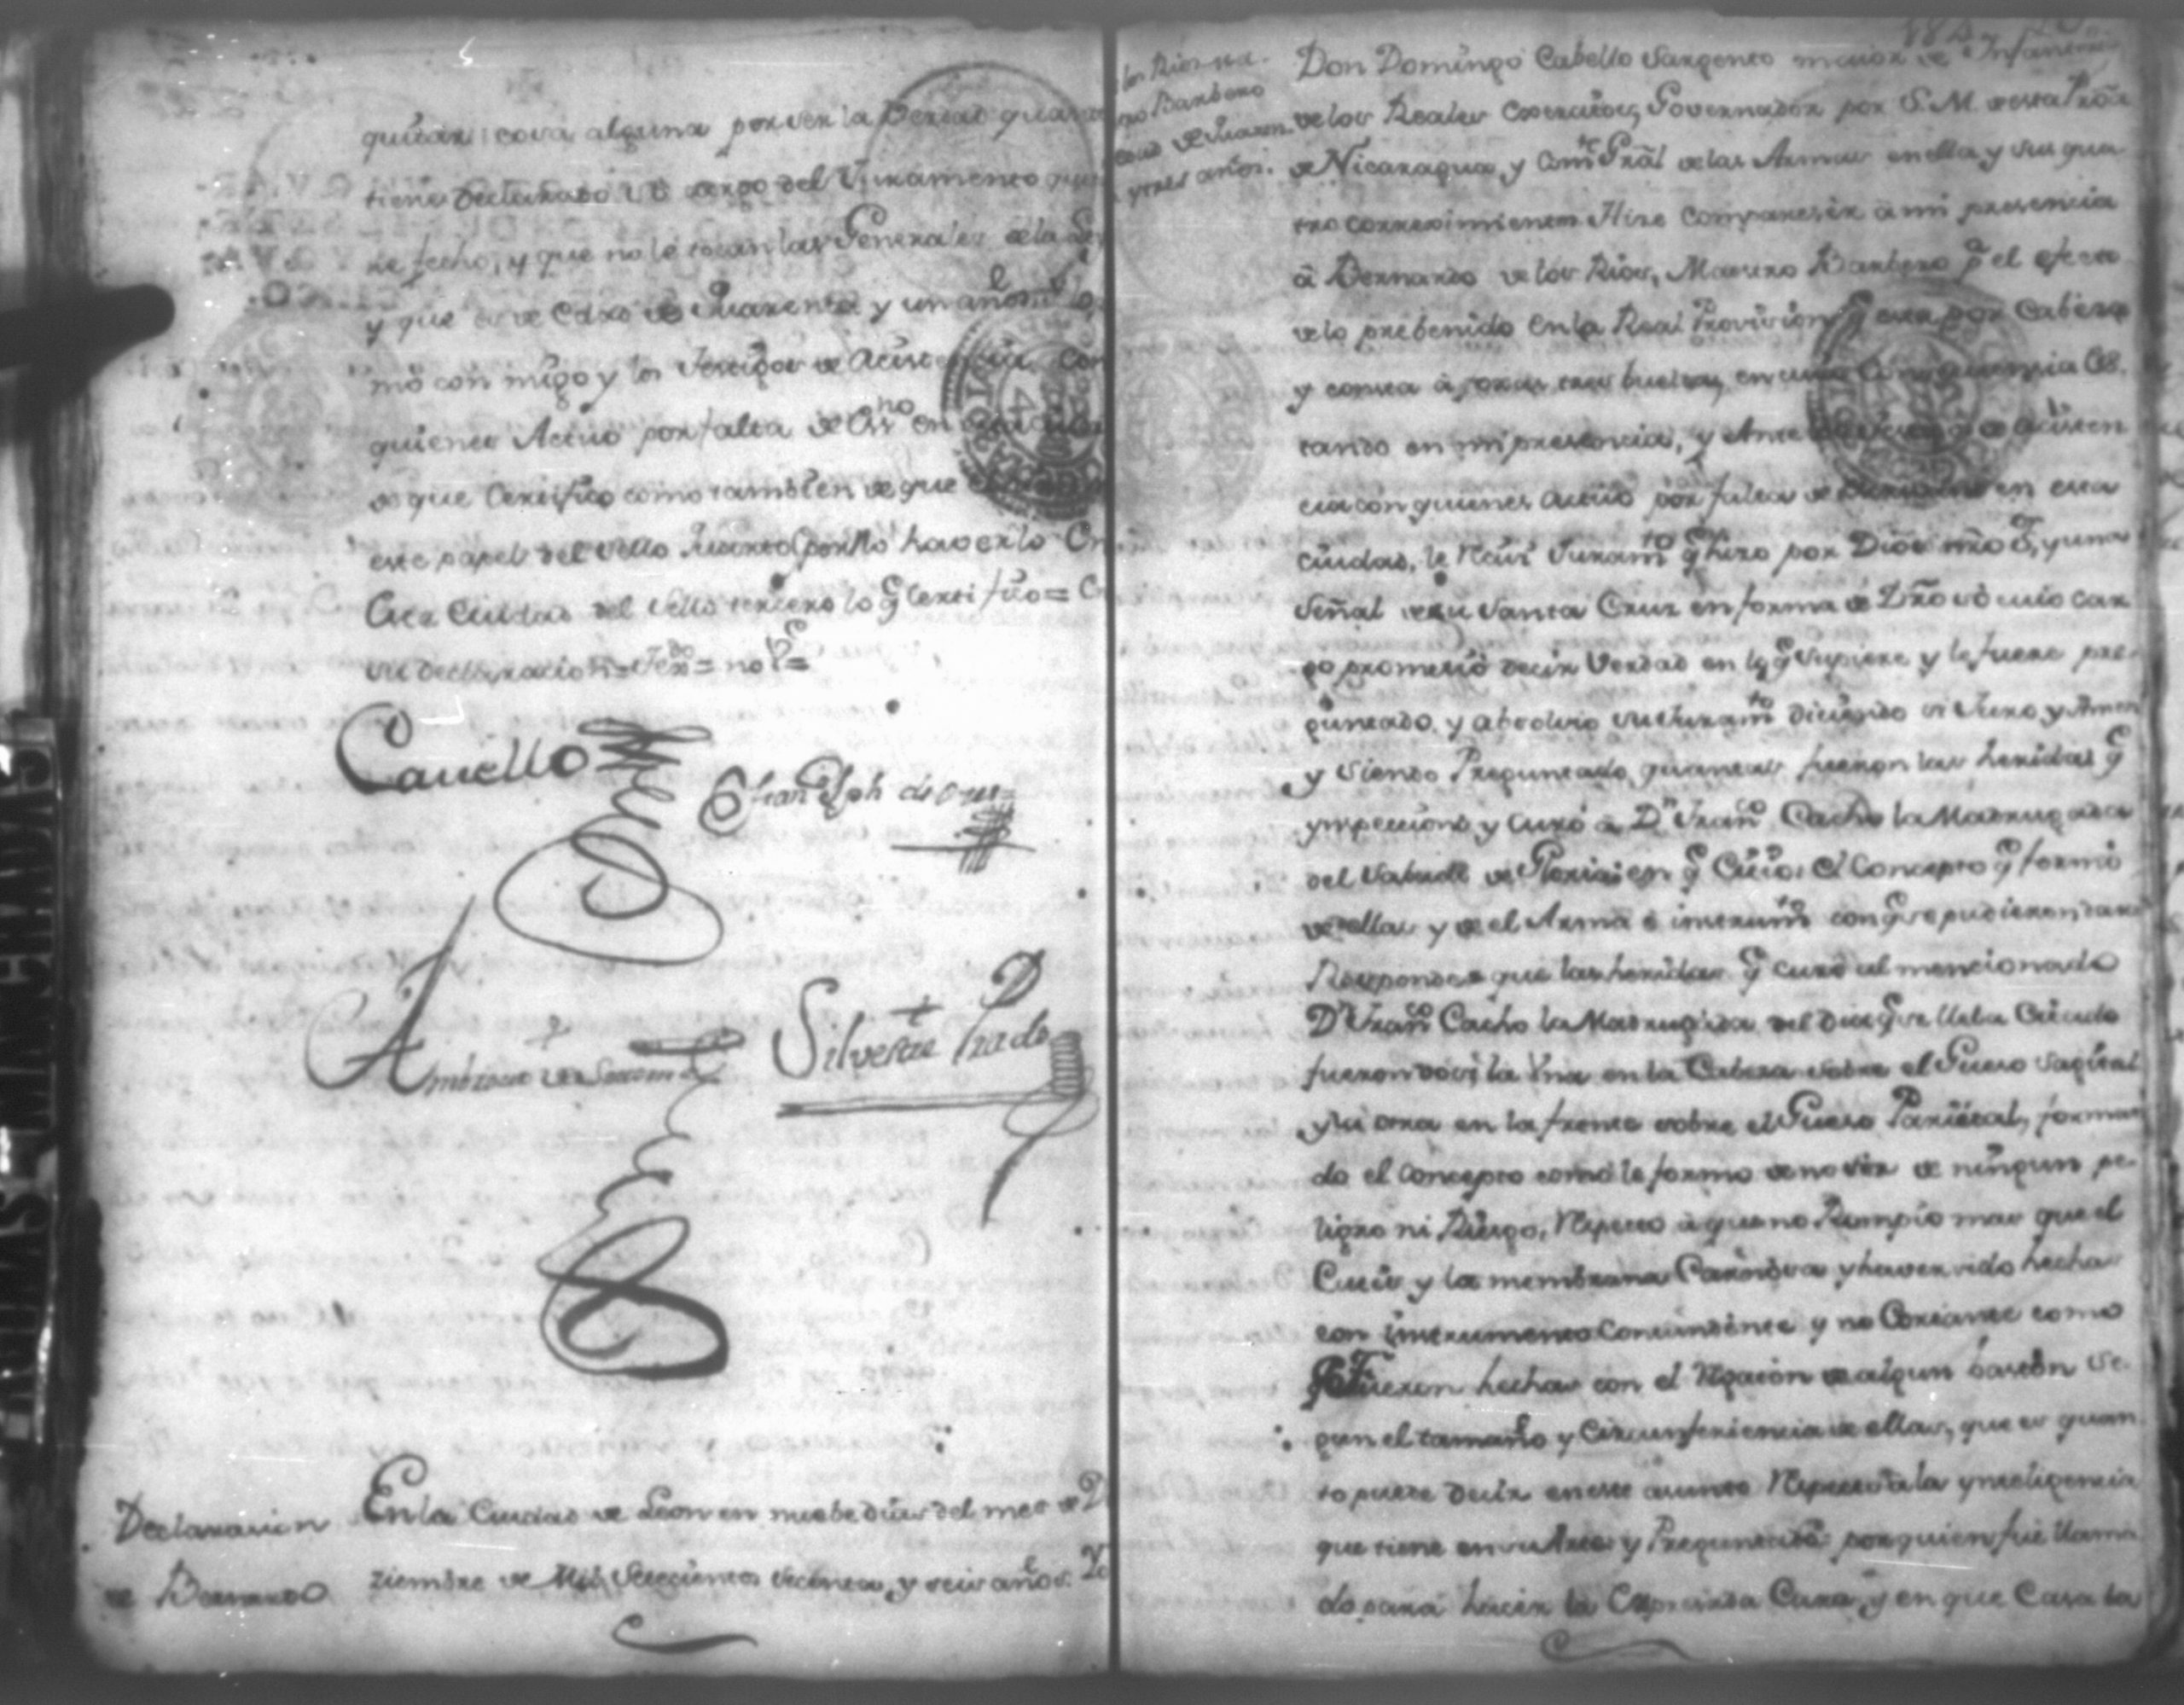 quitar cosa alguna por ser la Verdad quanto
tiene declarado vô cargo del Juramento que
ne fecho, y que no le tocan las Generales de la Ley
y que es de edad de quarenta y un años
mó con migo y los testigos de Asistencia con
quienes Actuo por falta de Essno en esta
do que Certifico como tambien de que
este papel del sello quarto por no haverlo en
esta Ciudad del sello tercero lo q Certifico =
su declaracion =
Cavello
Fran Jph de
Ambrosio de
Silvestre Prado
Declaracion
de Bernardo
En la Ciudad de Leon en nuebe dias del mes de Di
ziembre de Mil Setecientos Setenta, y seis años. Yo
los Rios
tro Barbero
edad de quaren
y tres años.
Don Domingo Cabello Sargento maior de Infanteria
de los Reales Exercitos, Governador por S. M. de esta Proã
de Nicaragua, y Comte Grãl de las Armas en ella y sus qua
tro correximientos Hize Comparesér â mi presencia
â Bernardo de los Rios, Maestro Barbero pa el efecto
de lo prebenido en la Real Provision q esta por Cabeza
y consta â foxas tres bueltas, en cuia Consequencia Es
tando en mi presencia, y Ante los testigos de Asisten
cia con quienes actúo por falta de Escribano en esta
Ciudad, le Reciví Juramto q hizo por Dios nro Sr, y una
Señal de su Santa Cruz en forma de Dro vô cuio car
go prometió decir Verdad en lo q Supiere y le fuere pre
guntado, y absolvio su Juramto diciendo si Juro y Amen
y siendo Preguntado, quantas fueron las heridas q
ynspeccionó y Curó a Dn Franco Cacho la Madrugada
del Sabado de Gloria en q Cúró: el Concepto q formó
de ellas y de el Arma ô instrumto con q se pudieron dar
Responde que las heridas q curó al mencionado
Dn Franco Cacho la Madrugada del dia q se lleba Citado
fueron dos: la Una en la Cabeza sobre el Gueso Sagital
y la otra en la frente sobre el Gueso Parietal, forman
do el Concepto como le formo de no ser de ningun pe
ligro ni Riesgo, Respecto â que no Rompio mas que el
Cutis y la membrana Carnosa y haver sido hecha
con instrumento Contundente y no Cortante como
q Fueron hechas con el Regaton de algun baston se
gun el tamaño y Circunferiencia de ellas, que es quan
to puede decir en este asunto Respecto â la ynteligencia
que tiene en su Arte: y Preguntado: por quien fué llama
do pará hacer la Expresada Cura, y en que Casa la